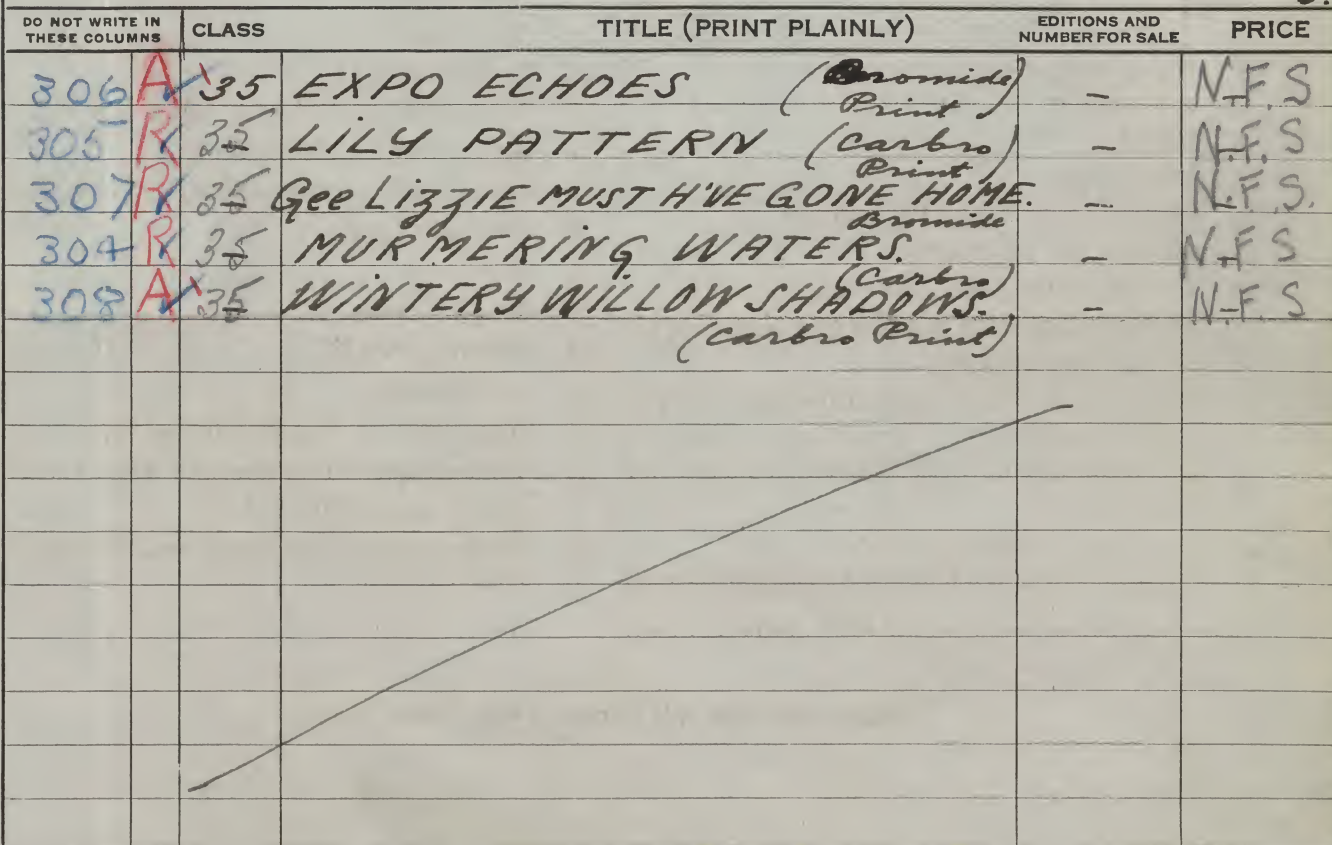 DO NOT WRITE IN THESE COLUMNS CLASS TITLE (PRINT PLAINLY) EDITIONS AND NUMBER FOR SALE PRICE
306 A 35 EXPO ECHOES (Bromide Print) – N.F.S
305 R 35 LILY PATTERN (Carbro Print) – N.F.S
307 R 35 Gee LizziE MUST H'VE GONE HOME. Bromide – N.F.S.
304 R 35 MURMERING WATERS. (Carbro) – N.F.S
308 A 35 WINTERY WILLOW SHADOWS. – N.F.S
(Carbro Print)